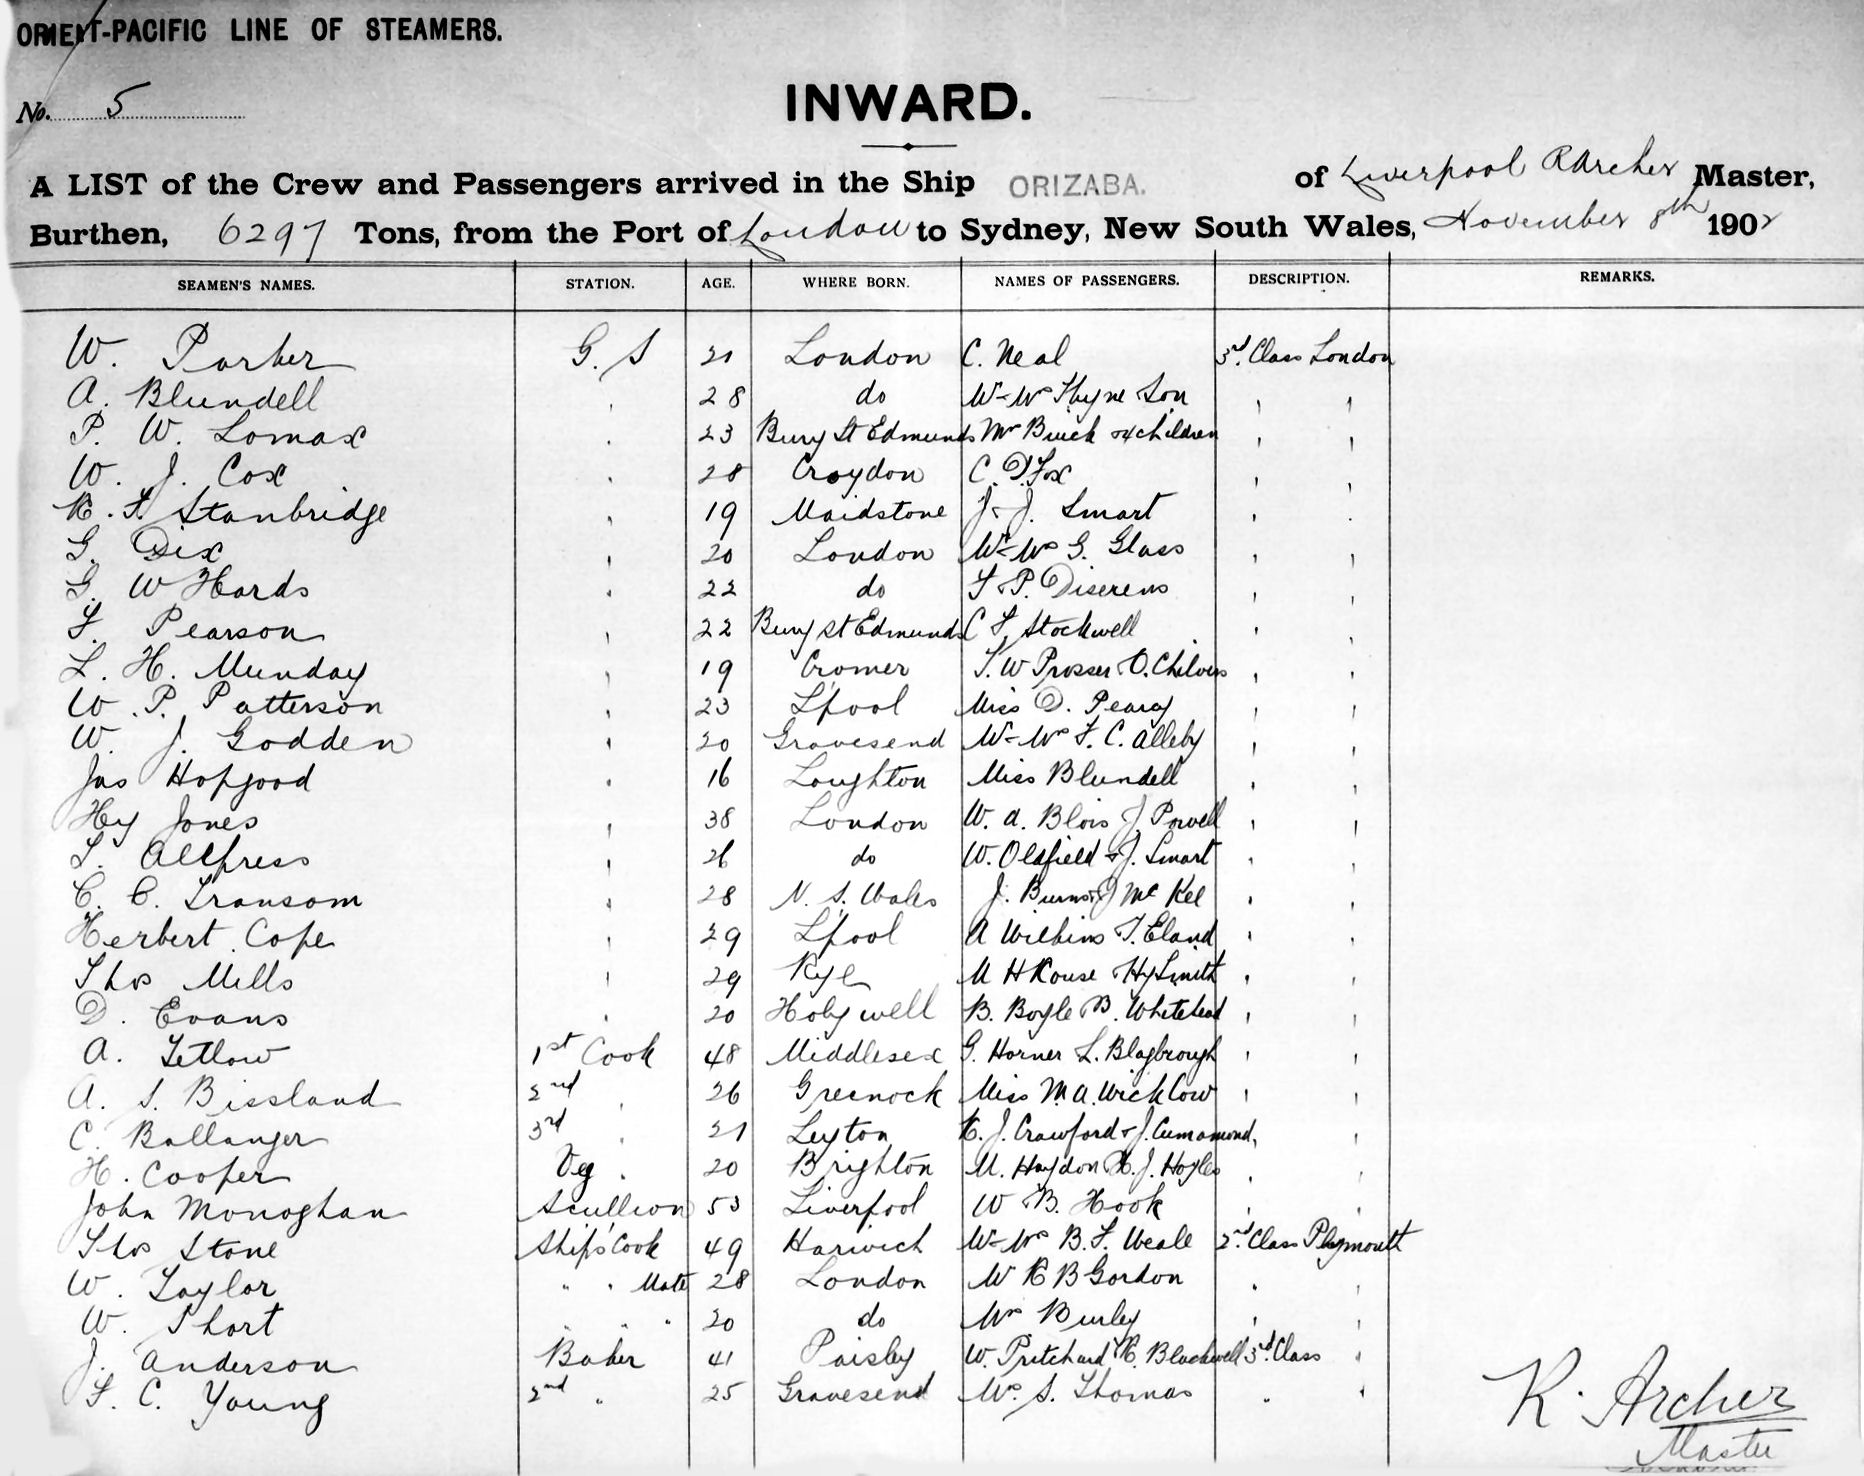 ORIENT-PACIFIC LINE OF STEAMERS.
No. 5
INWARD.
A LIST of the Crew and Passengers arrived in the Ship ORIZABA. of Liverpool R Archer Master,
Burthen, 6297 Tons, from the Port of London to Sydney, New South Wales, November 8th 1902
SEAMEN'S NAMES. STATION. AGE. WHERE BORN. NAMES OF PASSENGERS. DESCRIPTION. REMARKS.
W. Parker G. S 21 London C. Neal 3rd. Class London
A. Blundell 28 do Mr & Mrs Thyne Son
P. W. Lomax 23 Bury St Edmunds Mrs Buick & 4 children
W. J. Cox 28 Croydon C. D. Fox
R. F. Stanbridge 19 Maidstone J & J. Smart
G. Dix 20 London Mr & Mrs G. Glass
G. W Hards 22 do F & P. Diserens
F. Pearson 22 Bury St Edmunds C F. Stockwell
L. H. Munday 19 Cromer T. W Prosser & O. Chilvers
W. P. Patterson 23 L'pool Miss D. Pearcy
W. J. Godden 20 Gravesend Mr & Mrs F. C. Alleby
Jas Hopgood 16 Loughton Miss Blundell
Hy Jones 38 London W. A. Blois J. Powell
L. Allpress 26 do W. Oldfield & J. Smart
C. C. Transom 28 N. S. Wales J. Burns & J McKee
Herbert Cope 29 L'pool A Wilkins T. Eland
Thos Mills 29 Rye M H Rouse & Hy Smith
D. Evans 20 Holywell B. Boyle & B. Whitehead
A. Tetlow 1st Cook 48 Middlesex G. Horner L. Blagbrough
A. S. Bissland 2nd 26 Greenock Miss M. A. Wicklow
C. Ballanger 3rd 21 Leyton R. J. Crawford & J.
H. Cooper Veg 20 Brighton M. Haydon & H. J. Hoyles
John Monoghan Scullion 53 Liverpool W & B. Hook
Thos Stone Ship's Cook 49 Harwich Mr & Mrs B. F. Weale 2nd. Class Plymouth
W. Taylor " " Mate 28 London Mr R B Gordon
W. Short " " " 20 do Mrs Burley
J. Anderson Baker 41 Paisley W. Pritchard & R. Blackwell 3rd. Class
F. C. Young 2nd " 25 Gravesend Mrs. S. Thomas
R. Archer
Master